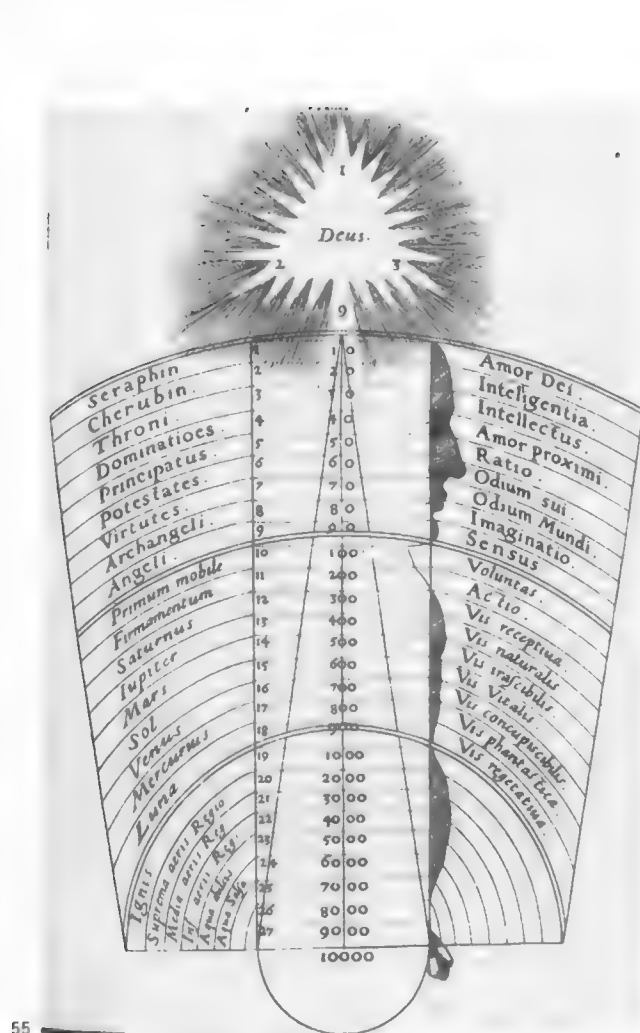 1
Deus.
2 3
9
Seraphin
Cherubin
Throni
Dominatioēs
Principatus
Potestates
Virtutes
Archangeli
Angeli
Primum mobile
Firmamentum
Saturnus
Iupiter
Mars
Sol
Venus
Mercurius
Luna
Ignis
Suprema aeris Regio
Media aeris Reg
Inf aeris Reg.
Aqua dulcis
Aqua Salsa
1
2
3
4
5
6
7
8
9
10
11
12
13
14
15
16
17
18
19
20
21
22
23
24
25
26
27
10
20
30
40
50
60
70
80
90
100
200
300
400
500
600
700
800
900
1000
2000
3000
4000
5000
6000
7000
8000
9000
10000
Amor Dei.
Intelligentia
Intellectus.
Amor proximi.
Ratio.
Odium sui
Odium Mundi
Imaginatio.
Sensus
Voluntas.
Actio.
Vis receptiva
Vis naturalis
Vis irascibilis.
Vis Vitalis
Vis concupiscibilis.
Vis phantastica.
Vis vegetativa.
55